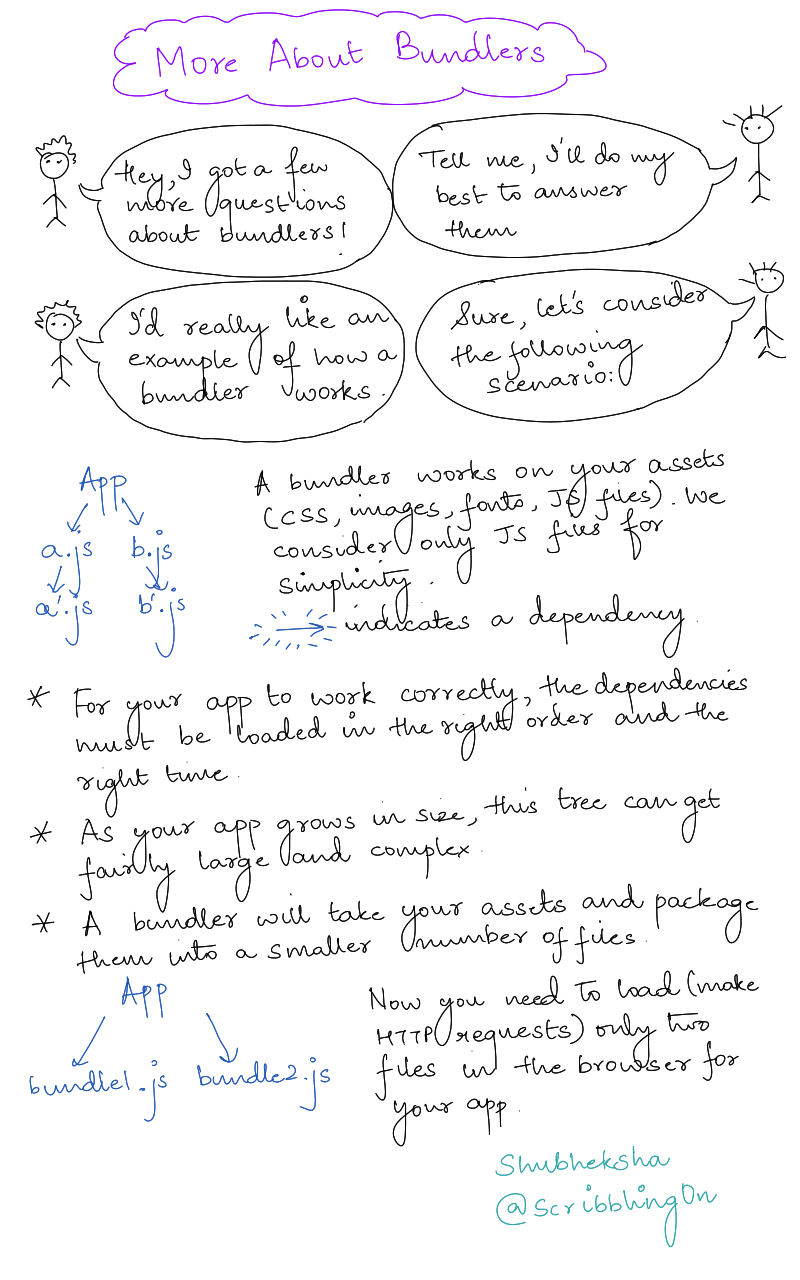 More About Bundlers
Hey, I got a few
more questions
about bundlers!
Tell me, I'll do my
best to answer
them
I'd really like an
example of how a
bundler works.
Sure, let's consider
the following
scenario:
App
a.js b.js
a'.js b'.js
A bundler works on your assets
(CSS, images, fonts, JS files). We
consider only JS files for
simplicity.
indicates a dependency.
* For your app to work correctly, the dependencies
must be loaded in the right order and the
right time.
* As your app grows in size, this tree can get
fairly large and complex.
* A bundler will take your assets and package
them into a smaller number of files.
App
bundle1.js bundle2.js
Now you need to load (make
HTTP requests) only two
files in the browser for
your app.
Shubheksha
@ScribblingOn